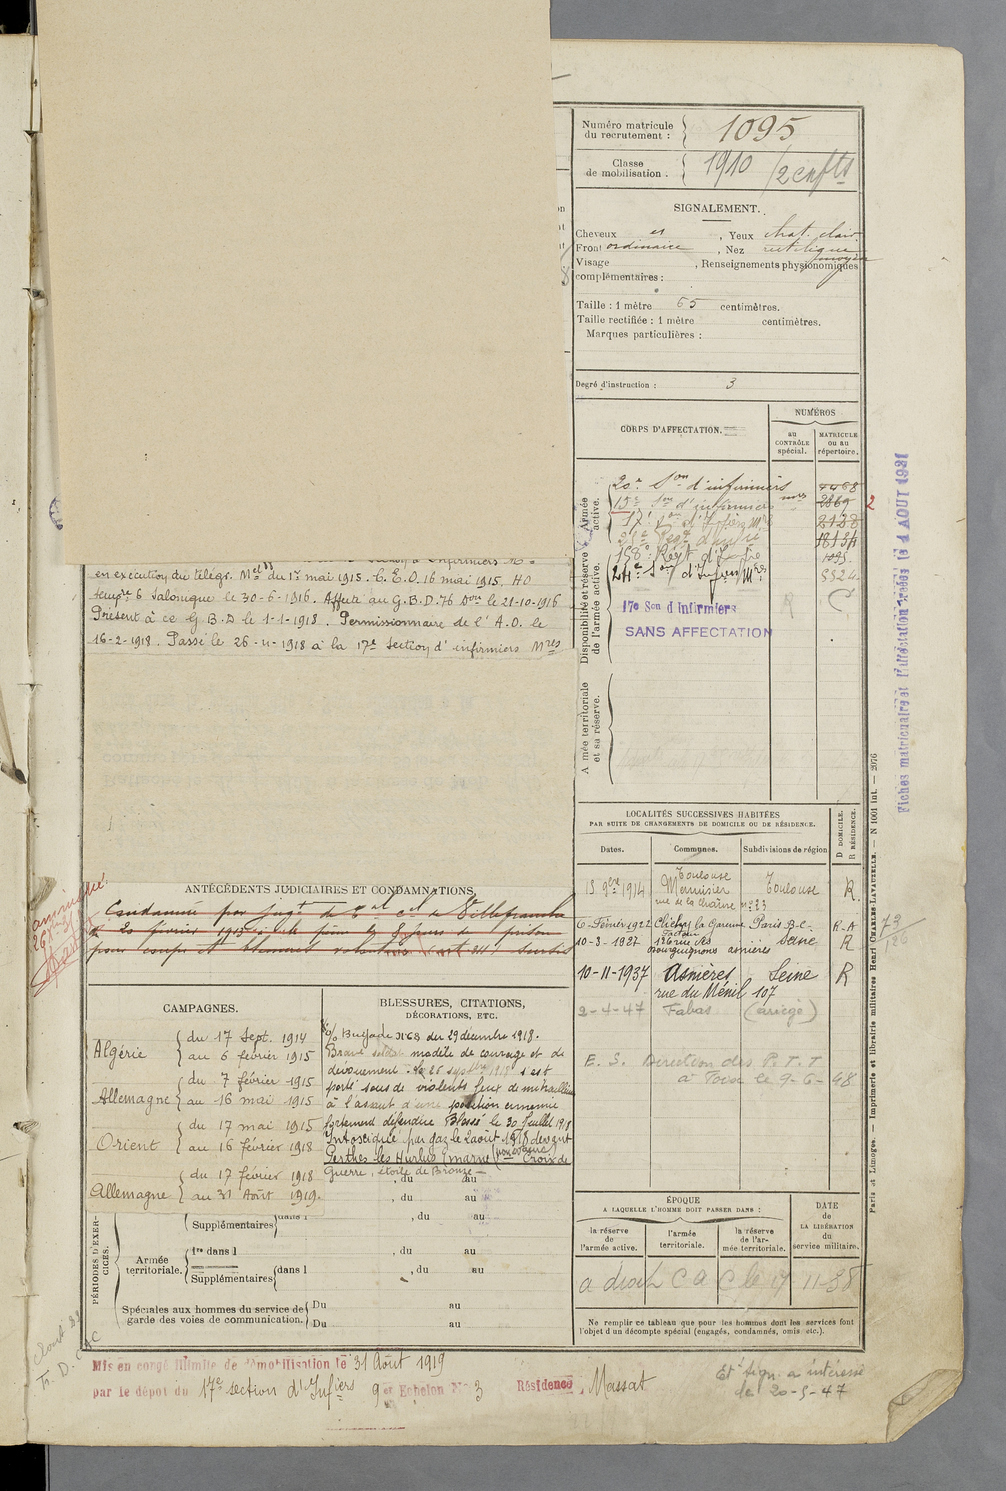 Numéro matricule
du recrutement :
1095
Classe
de mobilisation :
1910 /2 enfts
SIGNALEMENT.
Cheveux , Yeux chat. clair
Front ordinaire , Nez rectiligne
Visage , Renseignements physionomiques
moyen
complémentaires :
Taille : 1 mètre 65 centimètres.
Taille rectifiée : 1 mètre centimètres.
Marques particulières :
Degré d'instruction : 3
CORPS D'AFFECTATION.
NUMÉROS
au
CONTRÔLE
spécial.
MATRICULE
ou au
répertoire.
Armée
active.
20e Son d'infirmiers
15e Son d'infirmiers mres
2869
2
17e
2128
158e Régt d'Infie
1095
24e Son d'Infirm Mres
Disponibilité et réserve
de l'armée active.
17e Son d'infirmiers
SANS AFFECTATION
en exécution du télégr. Mel du 1er mai 1915. C.E.O. 16 mai 1915. HO
tempre 6 Salonique le 30-6-1916. Affecté au G.B.D. 76 Don le 21-10-1916
Présent à ce G.B.D le 1-1-1918. Permissionnaire de l'A.O. le
16-2-1918. Passé le 26-4-1918 à la 17e Section d'infirmiers Mres
Armée territoriale
et sa réserve.
Fiches matriculaire et d'affectation créées le 4 AOUT 1931
LOCALITÉS SUCCESSIVES HABITÉES
PAR SUITE DE CHANGEMENTS DE DOMICILE OU DE RÉSIDENCE.
Dates.
Communes.
Subdivisions de région
D DOMICILE.
R RÉSIDENCE.
Toulouse
13 9bre 1914 Menuisier Toulouse R.
rue de la Chaîne no 33
6-Février 1922 Clichy la Garenne Paris B-C- R-A
Facteur
10-3-1927 126 rue des Seine R
Bourguignons asnières
10-11-1937 Asnières Seine R
rue du Ménil 107
2-4-47 Fabas (ariège)
E. S. Direction des P.T.T
le 9-6-48
ANTÉCÉDENTS JUDICIAIRES ET CONDAMNATIONS.
Condamné par jugt du Cal cel de Villefranche
le 20 février 1913 à la peine de 8 jours de prison
pour coups et blessures volontaires
CAMPAGNES.
Algérie
du 17 Sept. 1914
au 6 février 1915
Allemagne
du 7 février 1915
au 16 mai 1915
Orient
du 17 mai 1915
au 16 février 1918
Allemagne
du 17 février 1918
au 31 Août 1919.
BLESSURES, CITATIONS,
DÉCORATIONS, ETC.
o/ Brigade N°68 du 29 décembre 1918.
Brave soldat modèle de courage et de
dévouement. Le 26 septbre 1918 s'est
porté sous de violents feux de mitrailleuses
à l'assaut d'une position ennemie
fortement défendue Blessé le 30 Juillet 1918
Intoxiqué par gaz le 2 août 1918 devant
Perthes-les-Hurlus (marne) (non évacué) Croix de
Guerre, étoile de Bronze —
, du au
, du au
PÉRIODES D'EXER-
CICES.
Supplémentaires dans l , du au
Armée
territoriale.
1re dans l , du au
Supplémentaires dans l , du au
Spéciales aux hommes du service de
garde des voies de communication.
Du au
Du au
ÉPOQUE
A LAQUELLE L'HOMME DOIT PASSER DANS :
la réserve
de
l'armée active.
l'armée
territoriale.
la réserve
de l'ar-
mée territoriale.
DATE
de
LA LIBÉRATION
du
service militaire.
a droit C A C le 17 11-38
Ne remplir ce tableau que pour les hommes dont les services font
l'objet d'un décompte spécial (engagés, condamnés, omis etc.).
Paris et Limoges. — Imprimerie et librairie militaires Henri CHARLES-LAVAUZELLE. — N 1001 Int. — 2076
Mis en congé illimité de démobilisation le 31 Août 1919
par le dépôt du 17e section d'Infiers 9e Echelon No 3 Résidence Massat
Et sign. a intéressé
le 20-5-47